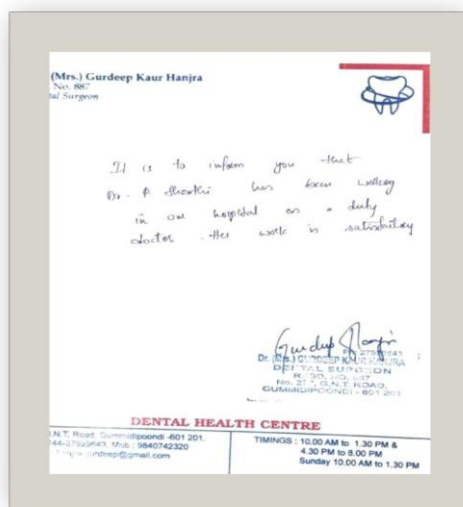 (Mrs.) Gurdeep Kaur Hanjra
No. 887
tal Surgeon
It is to inform you that
Dr. P. has been working
in our hospital as a duty
doctor. Her work is satisfactory
Dr. (Mrs.) GURDEEP KAUR HANJRA
DENTAL SURGEON
REGD. NO. 887
G.N.T. ROAD,
GUMMIDIPOONDI - 601 201
DENTAL HEALTH CENTRE
.N.T. Road, Gummidipoondi -601 201.
44-27922643, Mob : 9840742320
gurdeep@gmail.com
TIMINGS : 10.00 AM to 1.30 PM &
4.30 PM to 8.00 PM
Sunday 10.00 AM to 1.30 PM